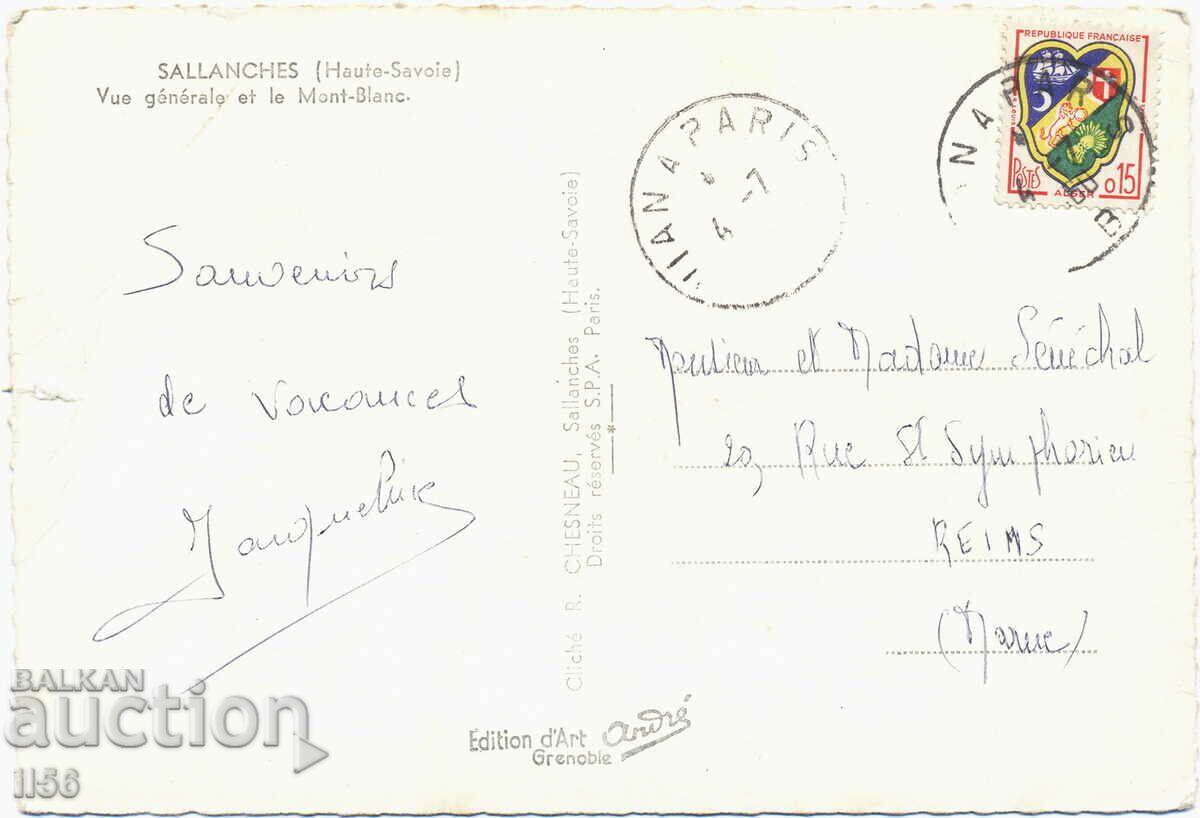 SALLANCHES (Haute-Savoie)
Vue générale et le Mont-Blanc.
Souvenirs
de vacances
Jacqueline
Cliché R. CHESNEAU, Sallanches (Haute-Savoie)
Droits réservés S.P.A. Paris.
*
Edition d'Art André
Grenoble
A PARIS
4 -7
REPUBLIQUE FRANÇAISE
POSTES
ALGER
0,15
Monsieur et Madame Sénéchal
Rue St Symphorien
REIMS
(Marne)
BALKAN
auction
1156